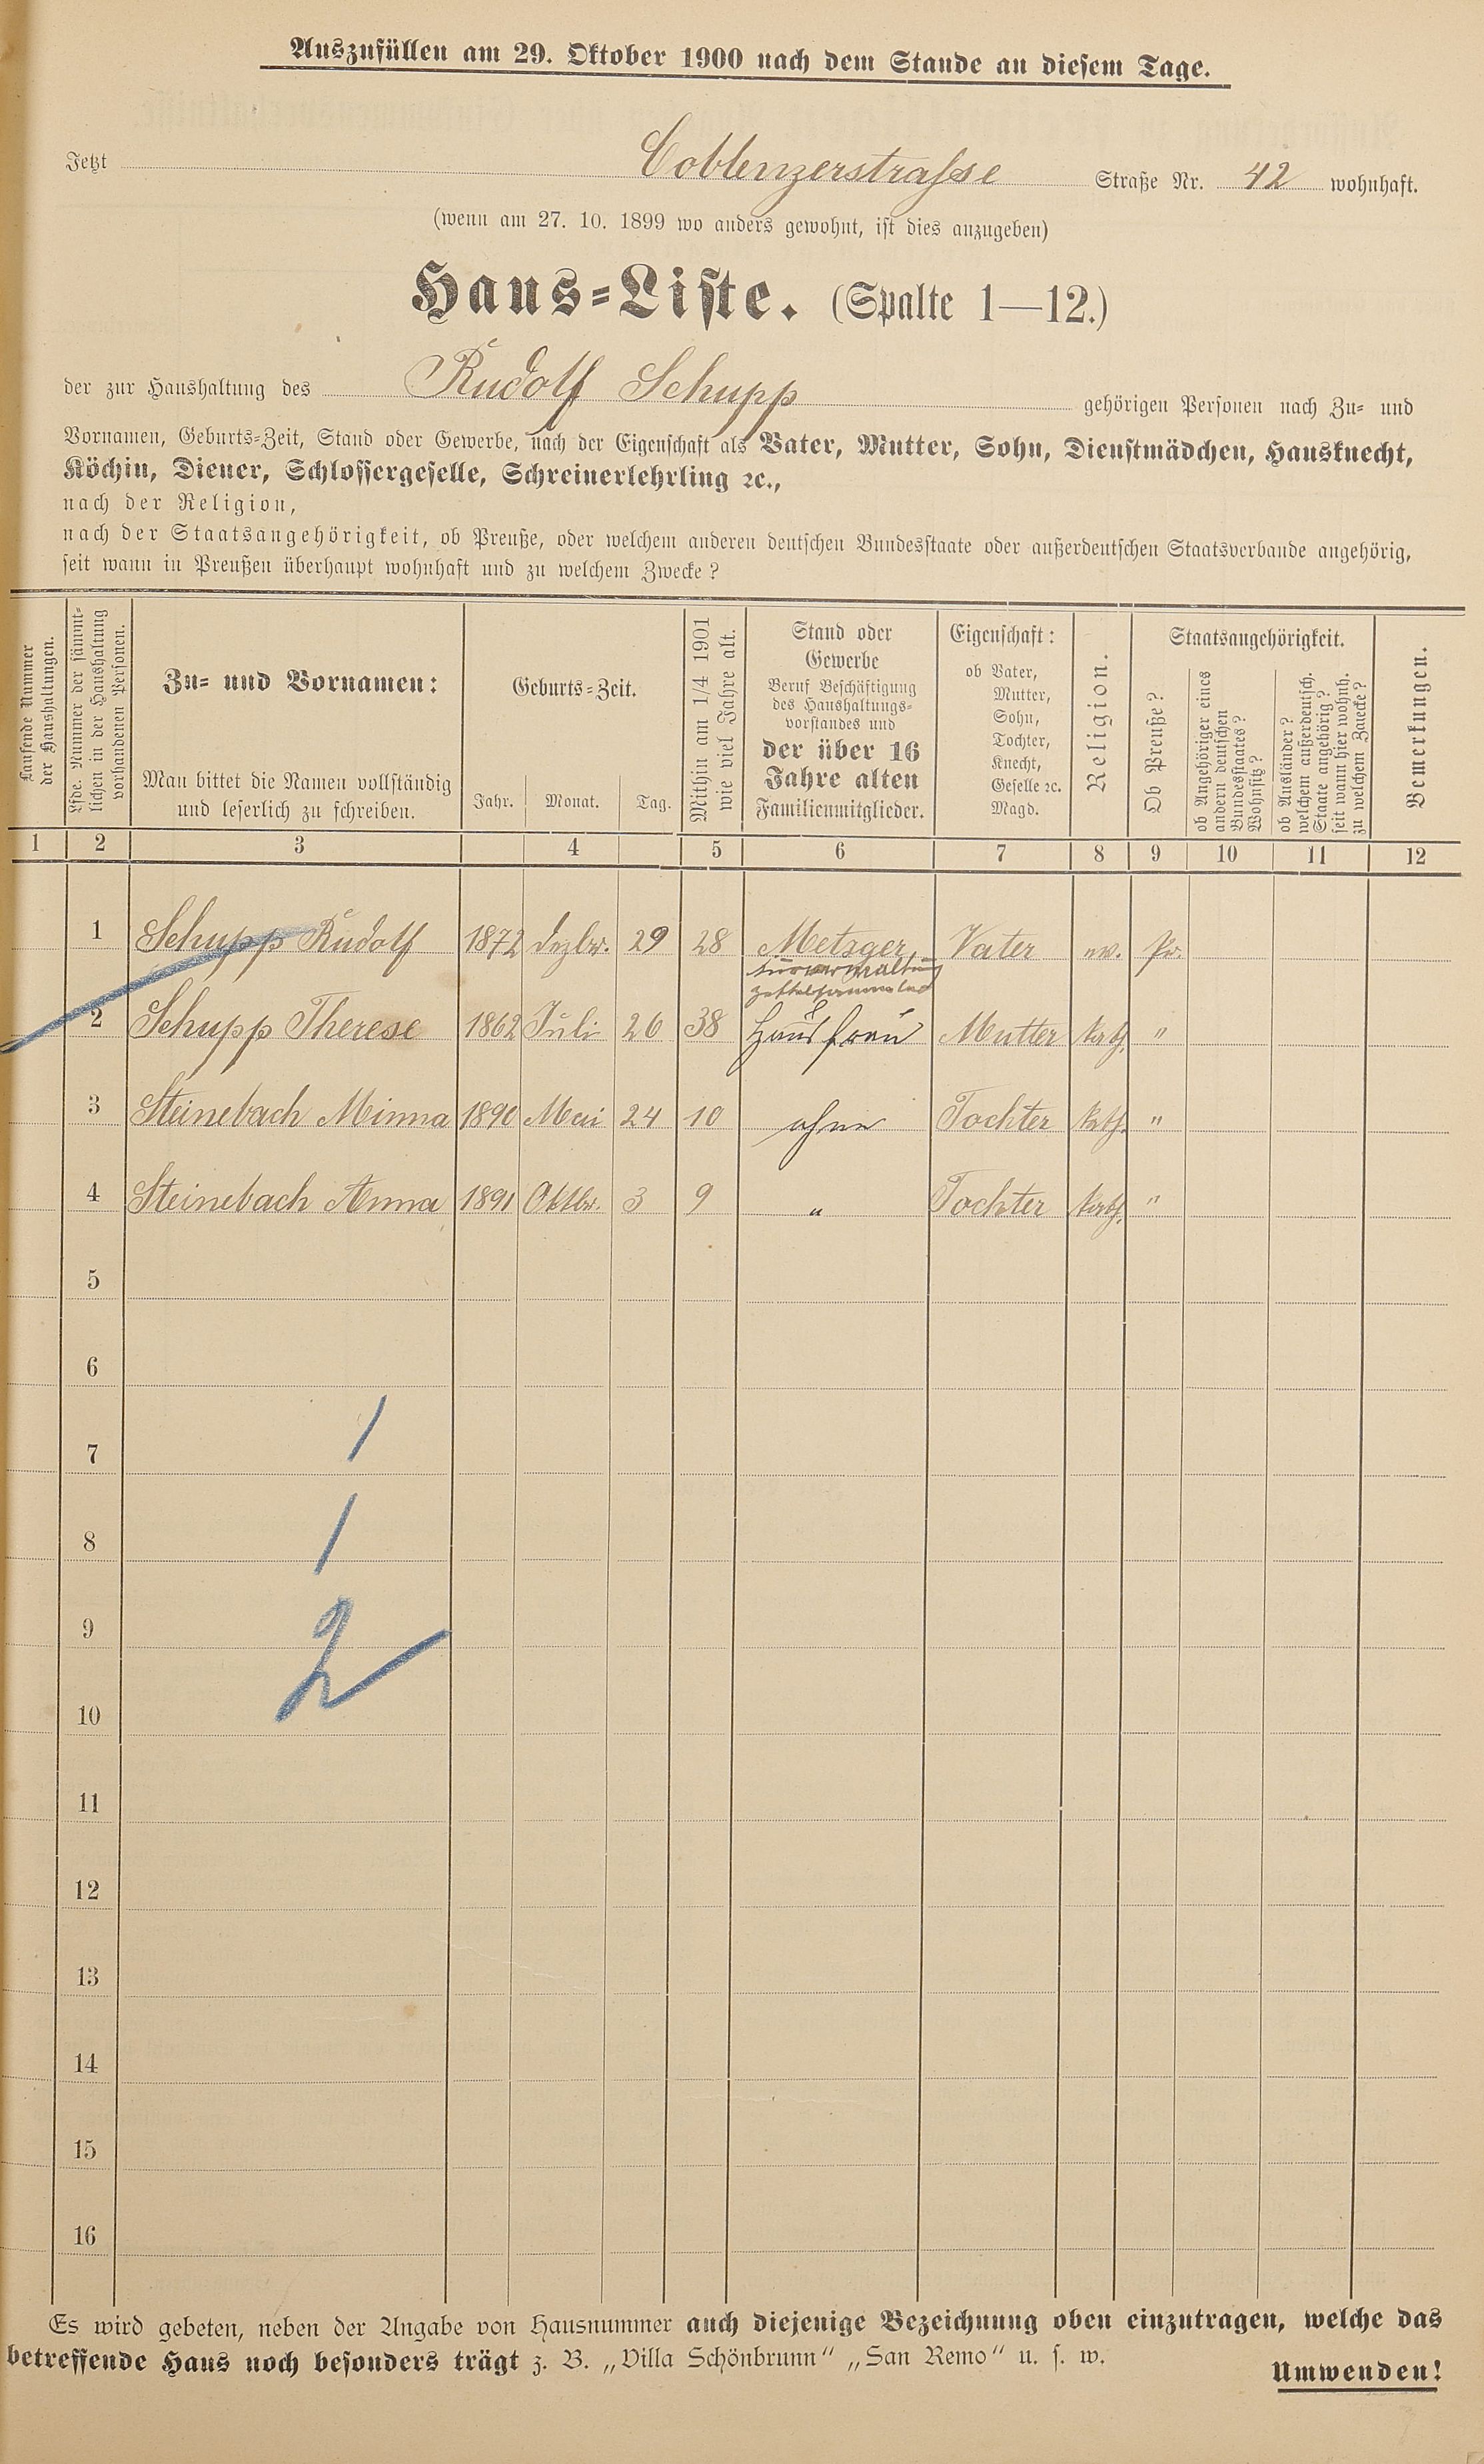 Auszufüllen am 29. Oktober 1900 nach dem Stande an diesem Tage.
Jetzt Coblenzerstrasse Straße Nr. 42 wohnhaft.
(wenn am 27. 10. 1899 wo anders gewohnt, ist dies anzugeben)
Haus-Liste. (Spalte 1—12.)
der zur Haushaltung des Rudolf Schupp gehörigen Personen nach Zu- und
Vornamen, Geburts-Zeit, Stand oder Gewerbe, nach der Eigenschaft als Vater, Mutter, Sohn, Dienstmädchen, Hausknecht,
Köchin, Diener, Schlossergeselle, Schreinerlehrling ꝛc.,
nach der Religion,
nach der Staatsangehörigkeit, ob Preuße, oder welchem anderen deutschen Bundesstaate oder außerdeutschen Staatsverbande angehörig,
seit wann in Preußen überhaupt wohnhaft und zu welchem Zwecke?
Laufende Nummer
der Haushaltungen.
Lfde. Nummer der sämmt-
lichen in der Haushaltung
vorhandenen Personen.
Zu- und Vornamen:
Man bittet die Namen vollständig
und leserlich zu schreiben.
Geburts-Zeit.
Jahr. Monat. Tag.
Mithin am 1/4 1901
wie viel Jahre alt.
Stand oder
Gewerbe
Beruf Beschäftigung
des Haushaltungs-
vorstandes und
der über 16
Jahre alten
Familienmitglieder.
Eigenschaft:
ob Vater,
Mutter,
Sohn,
Tochter,
Knecht,
Geselle ꝛc.
Magd.
Religion.
Staatsangehörigkeit.
Ob Preuße?
ob Angehöriger eines
andern deutschen
Bundesstaates?
Wohnsitz?
ob Ausländer?
welchem außerdeutsch.
Staate angehörig?
seit wann hier wohnh.
zu welchem Zwecke?
Bemerkungen.
1 2 3 4 5 6 7 8 9 10 11 12
1 Schupp Rudolf 1872 Dezbr. 29 28 Metzger Vater ev. Pr.
2 Schupp Therese 1862 Juli 26 38 Hausfrau Mutter kath. "
3 Steinebach Minna 1890 Mai 24 10 ohne Tochter kath. "
4 Steinebach Anna 1891 Oktbr. 3 9 " Tochter kath. "
5
6
7
1
8
1
9
2
10
11
12
13
14
15
16
Es wird gebeten, neben der Angabe von Hausnummer auch diejenige Bezeichnung oben einzutragen, welche das
betreffende Haus noch besonders trägt z. B. „Villa Schönbrunn" „San Remo" u. s. w.
Umwenden!